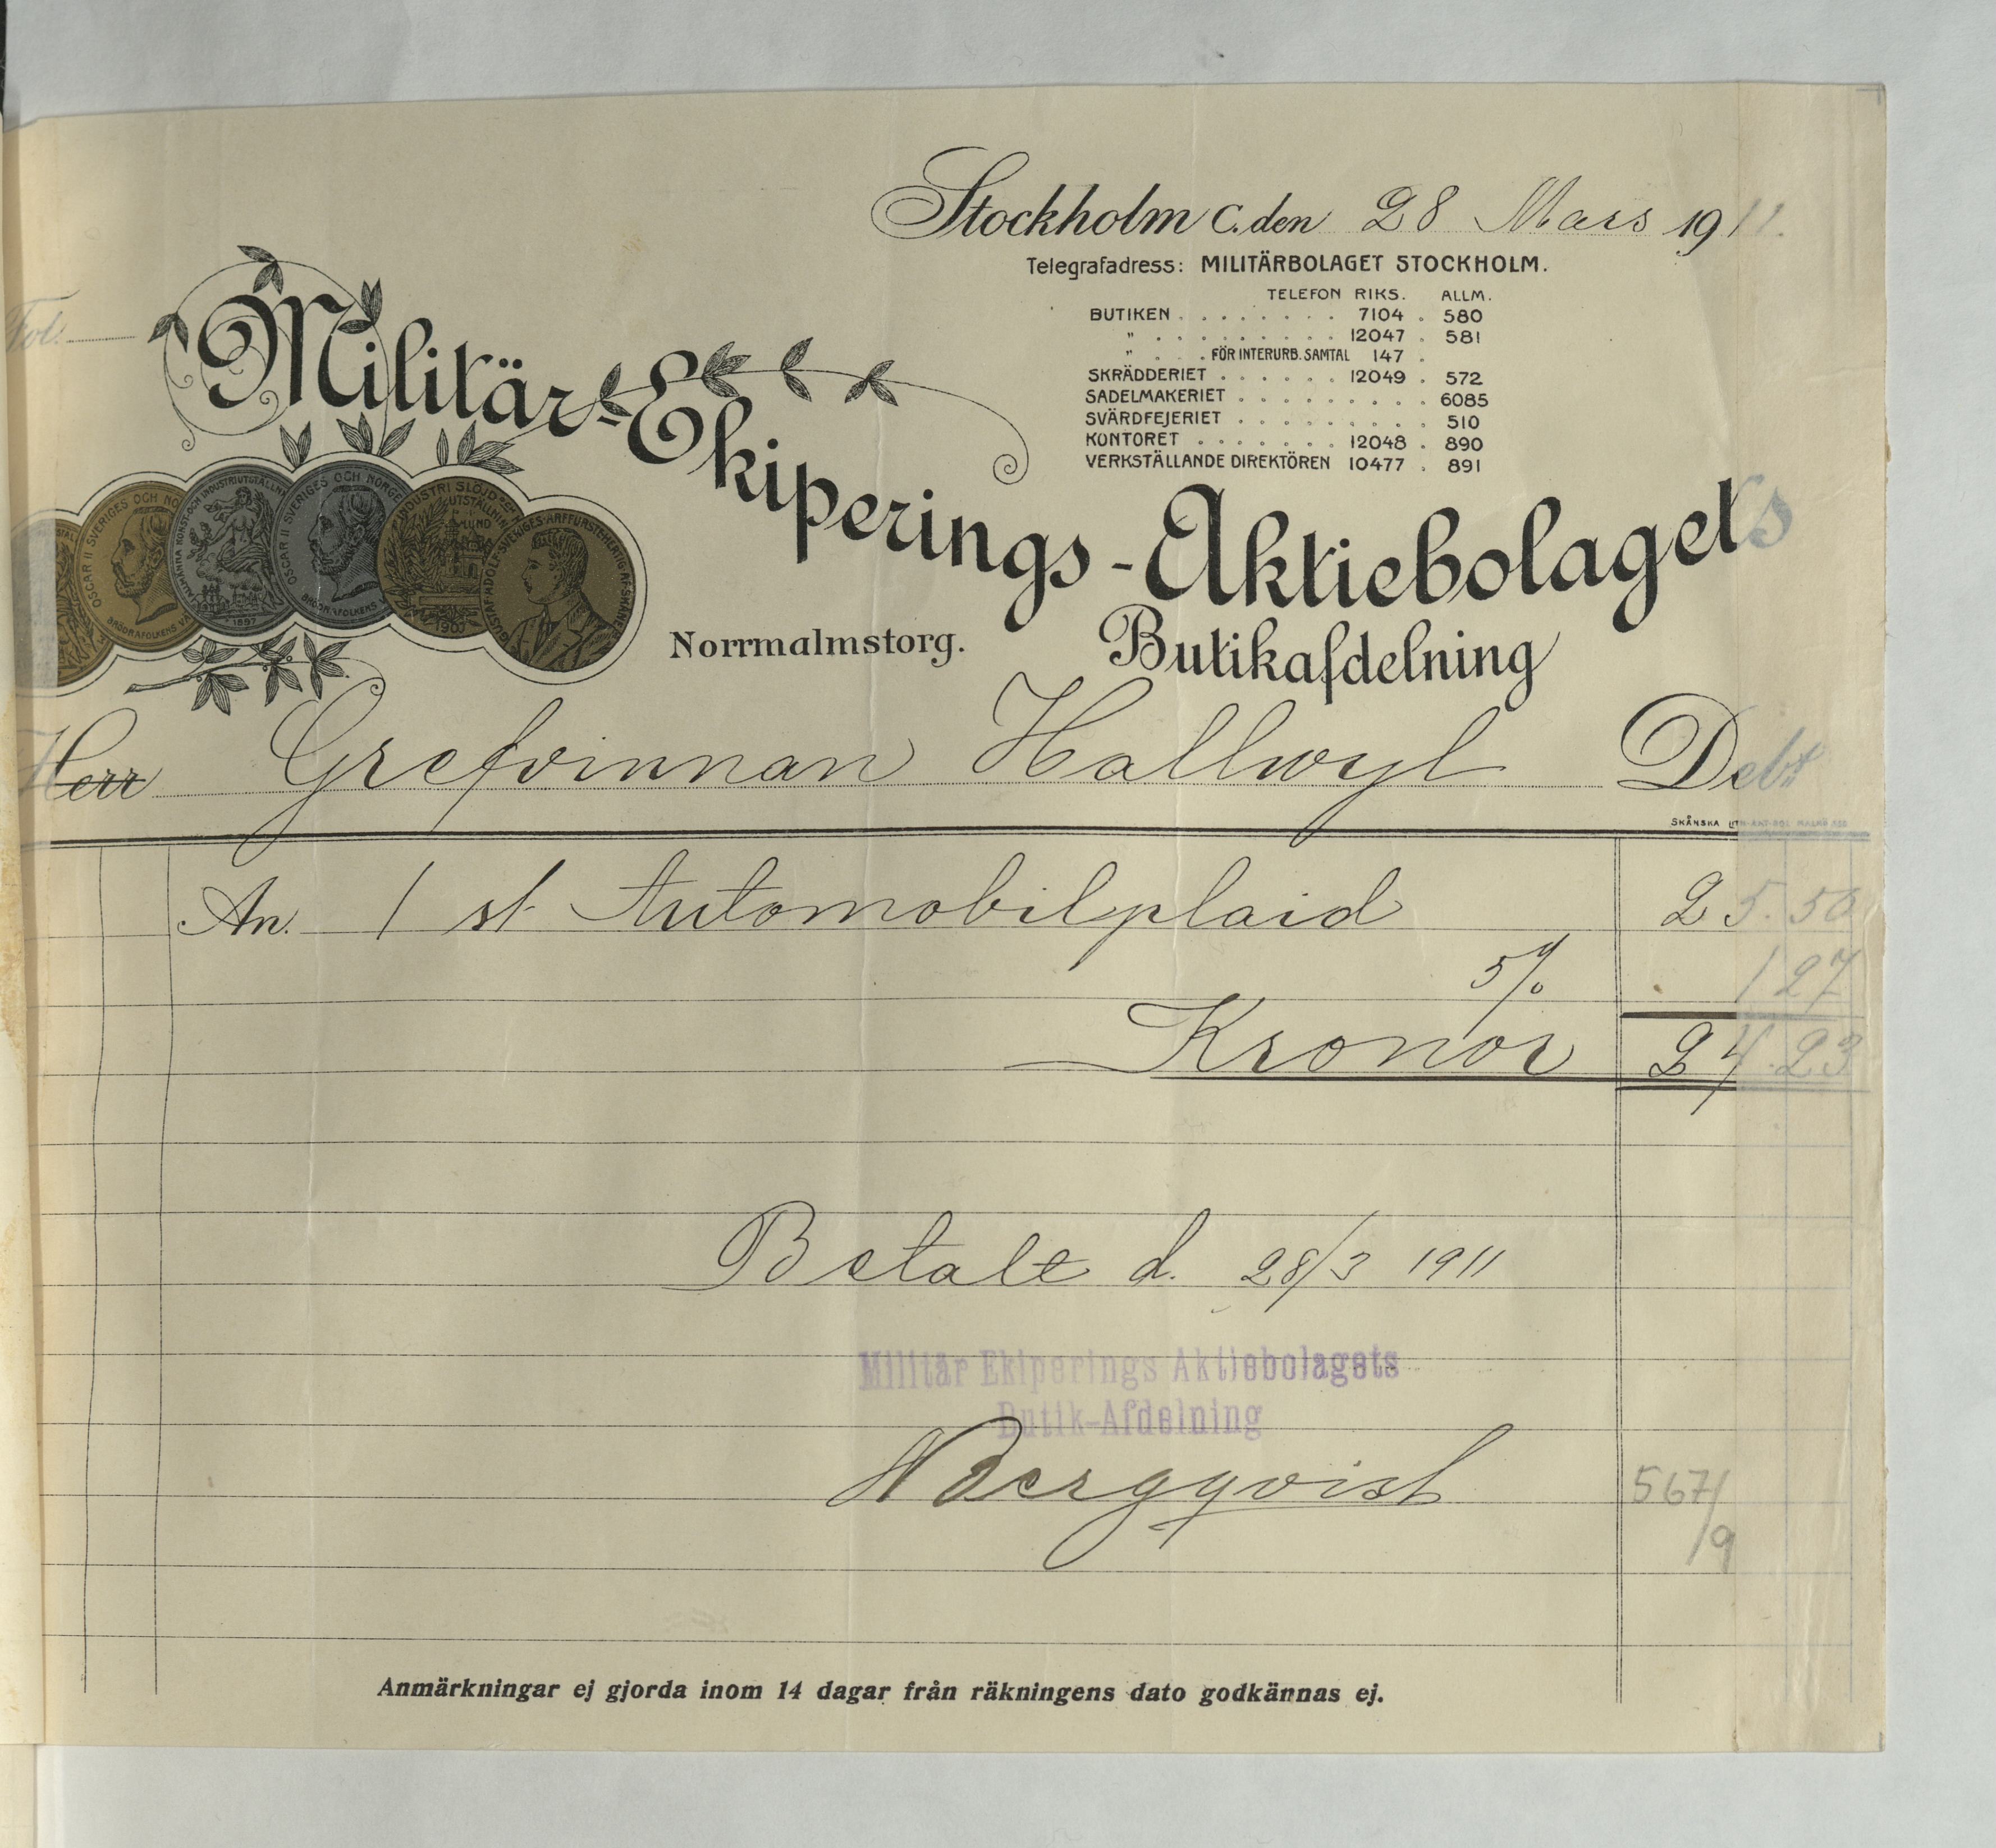 Stockholm C. den 28 Mars 1911.
Telegrafadress: MILITÄRBOLAGET STOCKHOLM.
TELEFON RIKS. ALLM.
BUTIKEN . . . . . . . . 7104 . 580
" . . . . . . . . . . 12047 . 581
" . . . FÖR INTERURB. SAMTAL 147 .
SKRÄDDERIET . . . . . . 12049 . 572
SADELMAKERIET . . . . . . . . . . 6085
SVÄRDFEJERIET . . . . . . . . . . 510
KONTORET . . . . . . . 12048 . 890
VERKSTÄLLANDE DIREKTÖREN 10477 . 891
Fol.
Militär-Ekiperings-Aktiebolagets
OSCAR II SVERIGES OCH NO
BRÖDRAFOLKENS VÄ
ALLMÄNNA KONST-OCH INDUSTRIUTSTÄLLN
1897
OSCAR II SVERIGES OCH NORGE
BRÖDRAFOLKENS V
INDUSTRI SLÖJD
UTSTÄLLNIN
LUND
1900
GUSTAF ADOLF SVERIGES ARFFURSTE HERTIG AF SKÅNE
Norrmalmstorg.
Butikafdelning
Herr Grefvinnan Hallwyl Debt
SKÅNSKA LITH. AKT-BOL MALMÖ
An. 1 st Automobilplaid 25.50
5% 1 27
Kronor 24.23
Betalt d. 28/3 1911
Militär Ekiperings Aktiebolagets
Butik-Afdelning
Bergqvist
567/
/9
Anmärkningar ej gjorda inom 14 dagar från räkningens dato godkännas ej.